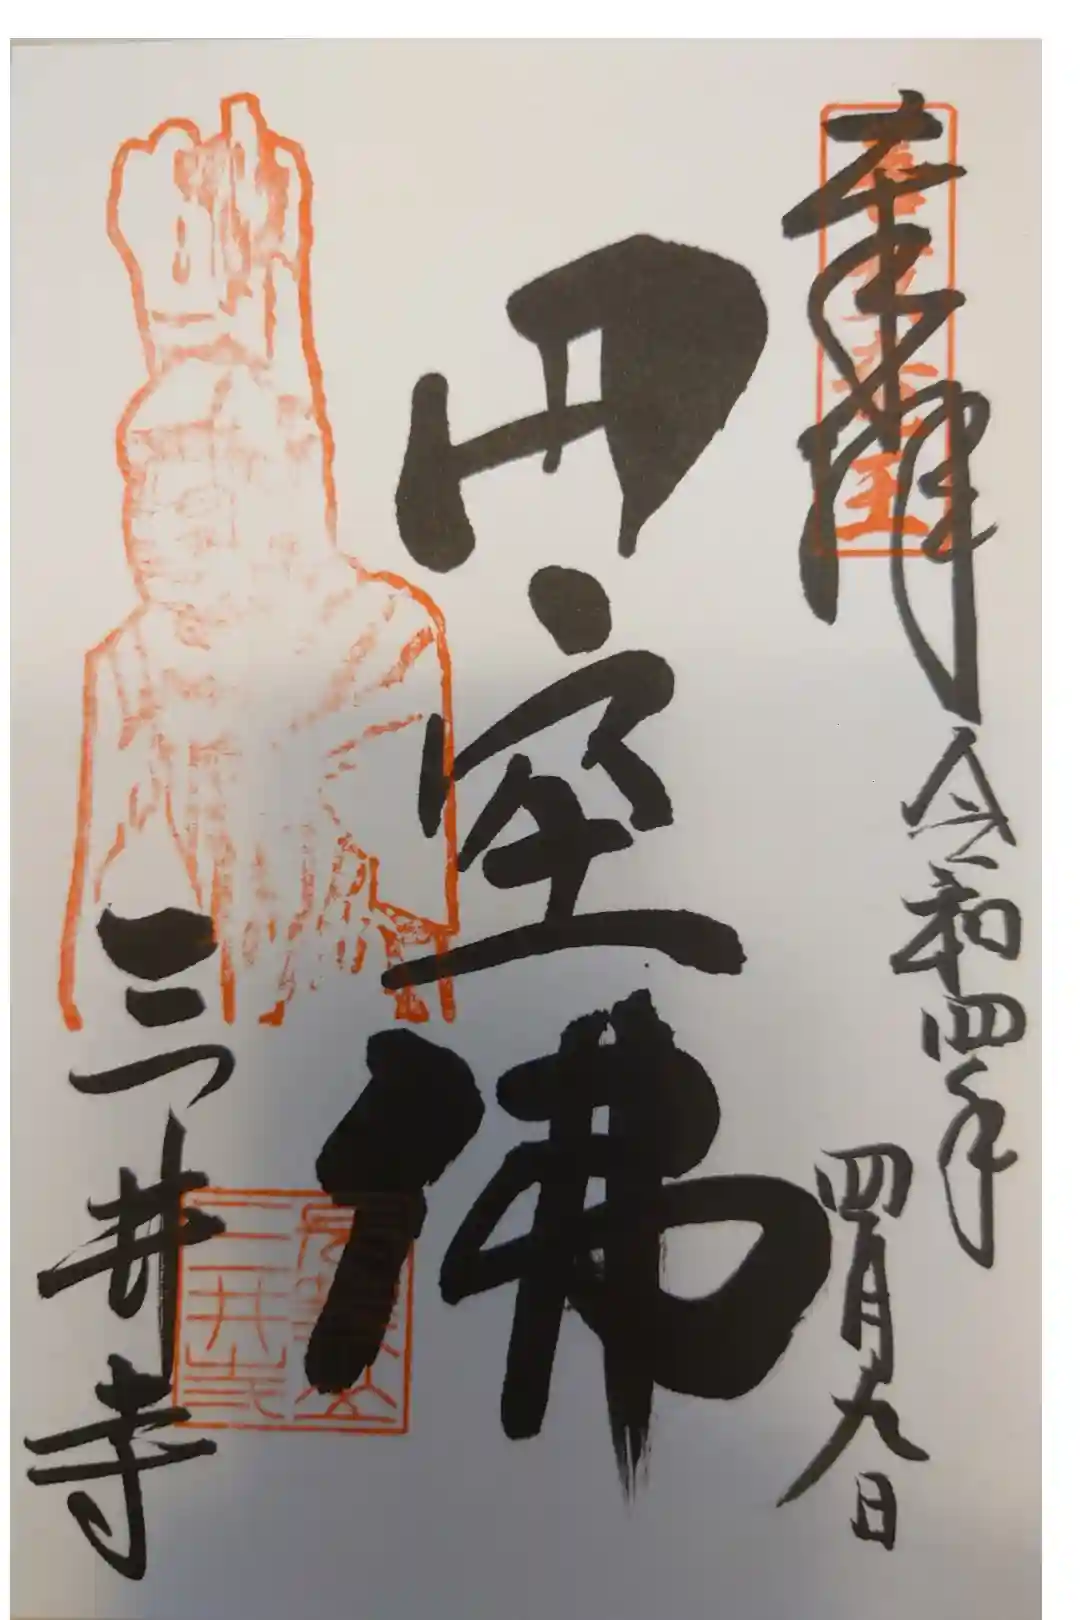 奉拝
令和四年
四月九日
円空佛
三井寺
三井寺